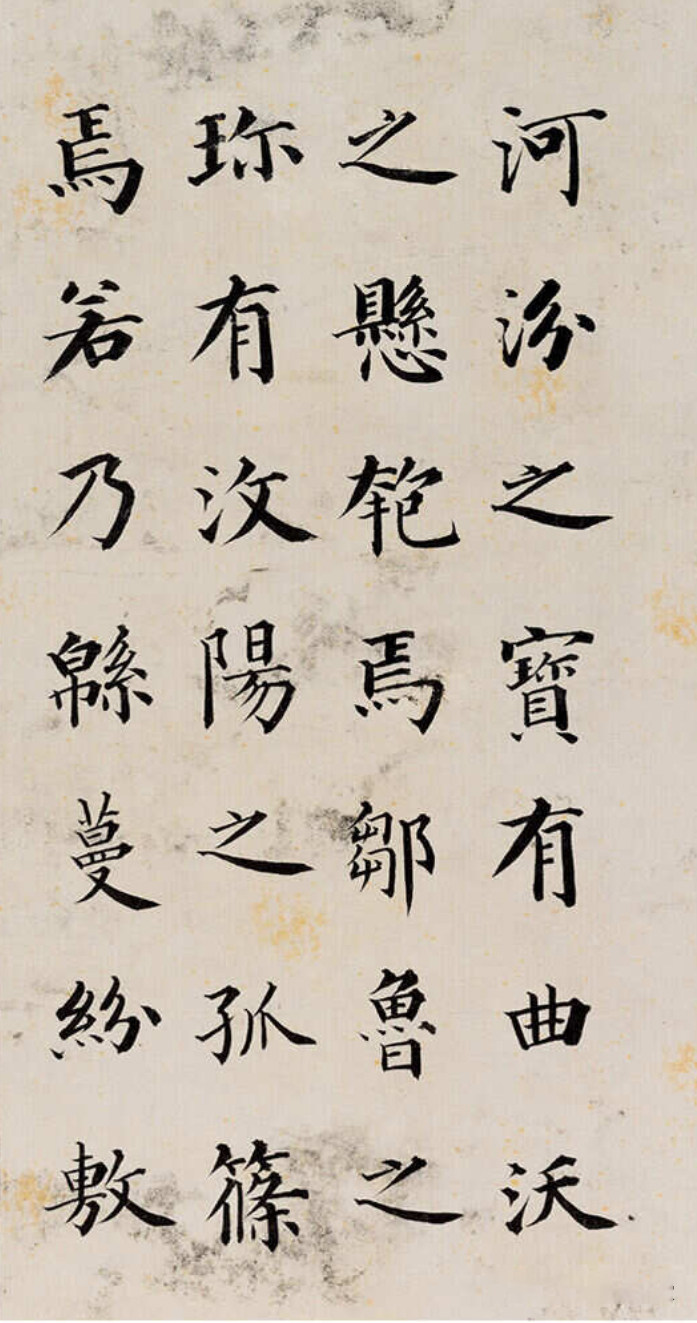 河汾之寶有曲沃
之懸匏焉鄒魯之
珎有汶陽之孤篠
焉若乃緜蔓紛敷